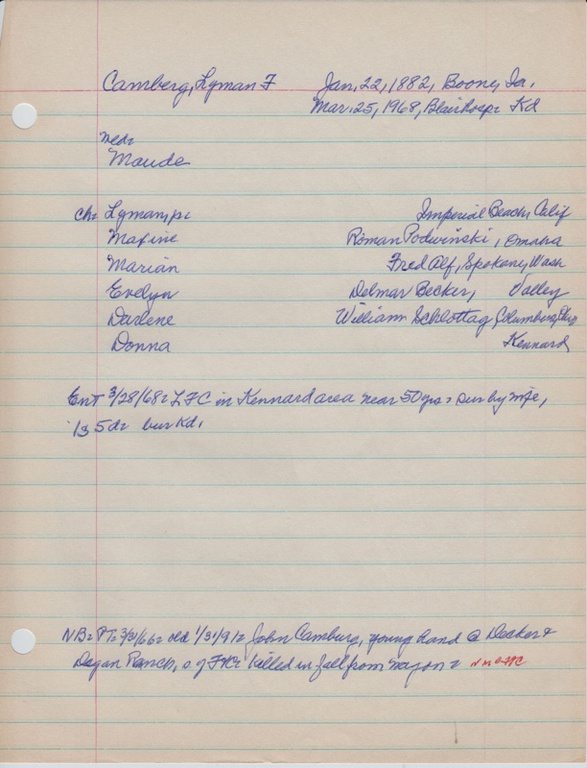 Camberg, Lyman F Jan. 22, 1882, Boone, Ia.
Mar. 25, 1968, Blair Hosp: Kd
Med:
Maude
Ch: Lyman, jr. Imperial Beach, Calif
Maxine Roman Podwinski, Omaha
Marian Fred Alf, Spokane, Wash
Evelyn Delmar Becker, Valley
Darlene William Schlottag Columbus
Donna Kennard
Ent 3/28/68: LFC in Kennard area near 50 yrs: sur by wife,
1s 5d: bur Kd.
NB: PT: 3/31/66: old 1/31/91: John Camburg, young hand @ Decker &
Degan Ranch, killed in fall from wagon: